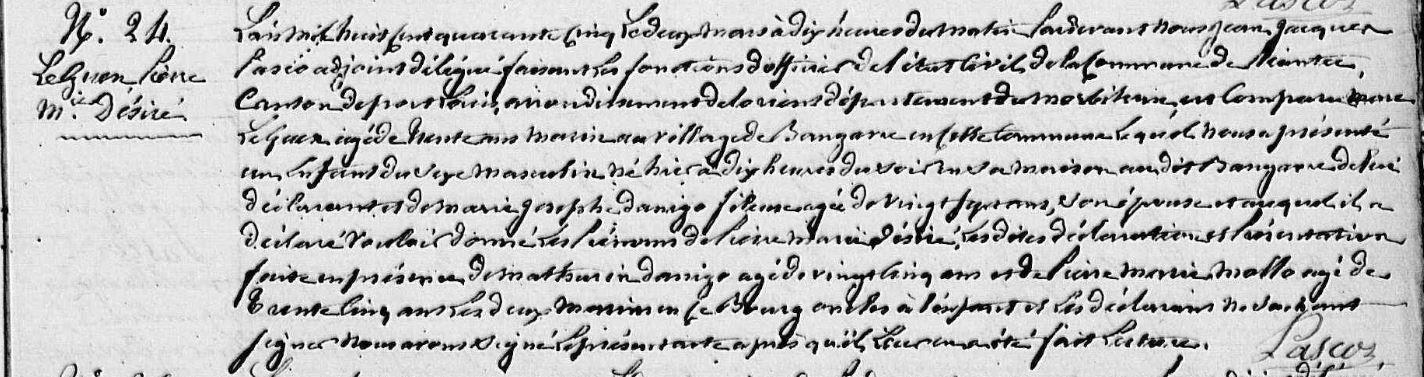 N.° 24.
Le Guen, Pierre
M.ie Désiré
L'an mil huit cent quarante cinq Le deux Mars à dix heures du matin Pardevant Nous Jean Jacques
Lasco adjoint délégué faisant Les fonctions d'officier de l'état Civil de la Commune de Riantec,
Canton de port Louis, arrondissement de Lorient département du Morbihan, est Comparu
Le Guen agé de trente ans Marin au village de Bangavre en cette Commune Lequel Nous a présenté
un Enfant du sexe Masculin Né hier à dix heures du soir en sa maison au dit Bangavre de lui
déclarant et de Marie Josephe danigo fileuse agée de vingt sept ans, son épouse et auquel il a
déclaré Vouloir donné Les Prénoms de Pierre Marie Désiré, Les dites déclaration et Présentation
faite en présence de Mathurin danigo agé de vingt Cinq ans et de Pierre Marie Mollo agé de
Trente Cinq ans Les deux Marins en ce Bourg oncles à l'enfant et Les déclarans Ne sachant
signer Nous avons signé Le présent acte après qu'il Leur en a été fait Lecture.
Lascoz,